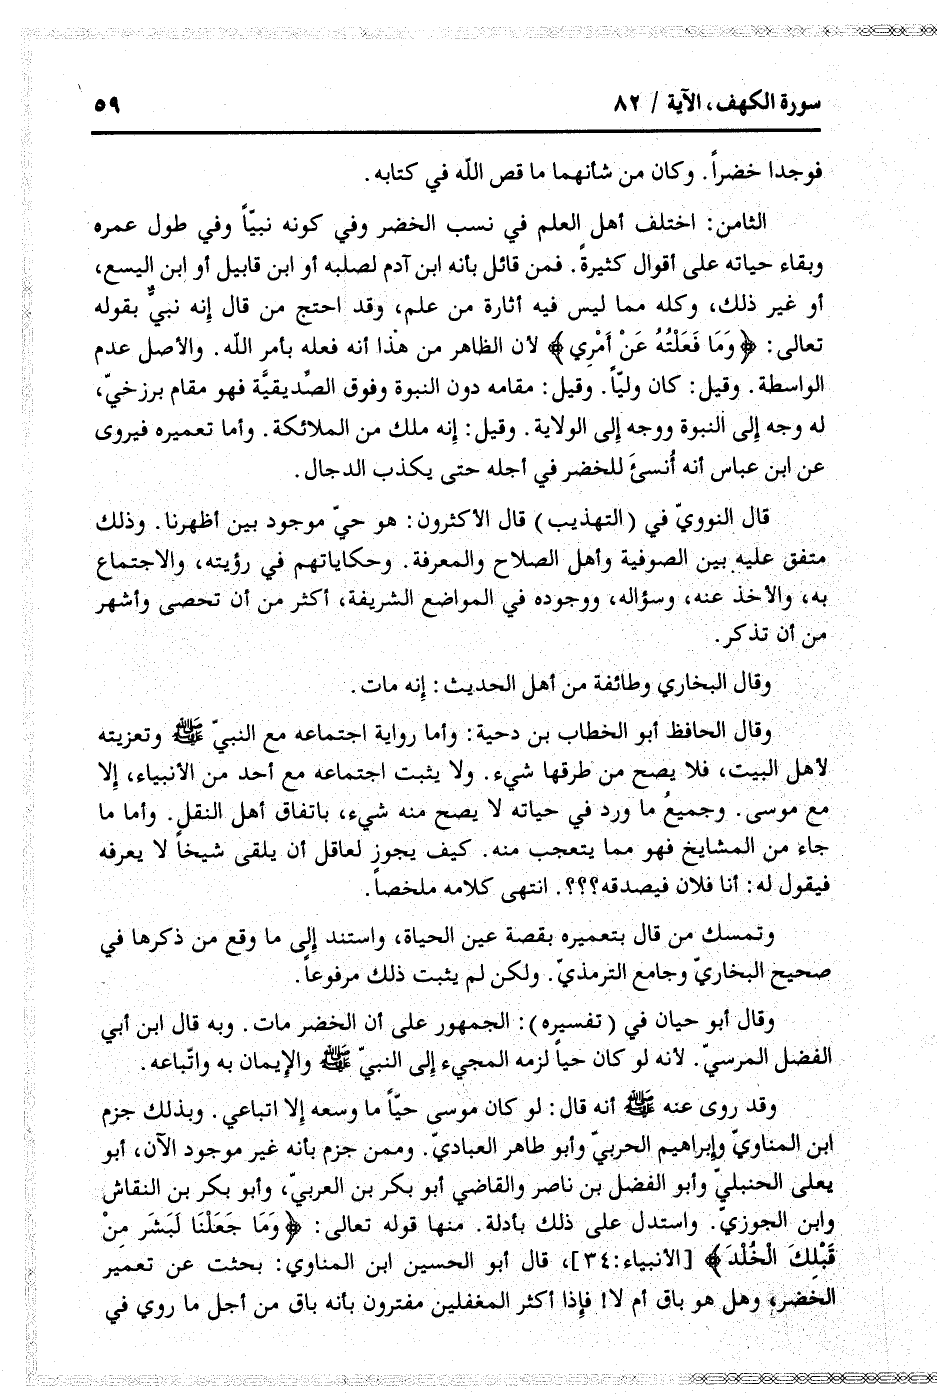 سورة الكهف، الآية / ٨٢ ٥٩
فوجدا خضراً. وكان من شأنهما ما قص اللّه في كتابه.
الثامن: اختلف أهل العلم في نسب الخضر وفي كونه نبيّاً وفي طول عمره
وبقاء حياته على أقوال كثيرة. فمن قائل بأنه ابن آدم لصلبه أو ابن قابيل أو ابن اليسع،
أو غير ذلك، وكله مما ليس فيه أثارة من علم، وقد احتج من قال إنه نبيٌّ بقوله
تعالى: ﴿وَمَا فَعَلْتُهُ عَنْ أَمْرِي﴾ لأن الظاهر من هذا أنه فعله بأمر اللّه. والأصل عدم
الواسطة. وقيل: كان وليّاً. وقيل: مقامه دون النبوة وفوق الصِّديقيَّة فهو مقام برزخيّ،
له وجه إلى النبوة ووجه إلى الولاية. وقيل: إنه ملك من الملائكة. وأما تعميره فيروى
عن ابن عباس أنه أُنسئَ للخضر في أجله حتى يكذب الدجال.
قال النوويّ في (التهذيب) قال الأكثرون: هو حيّ موجود بين أظهرنا. وذلك
متفق عليه بين الصوفية وأهل الصلاح والمعرفة. وحكاياتهم في رؤيته، والاجتماع
به، والأخذ عنه، وسؤاله، ووجوده في المواضع الشريفة، أكثر من أن تحصى وأشهر
من أن تذكر.
وقال البخاري وطائفة من أهل الحديث: إنه مات.
وقال الحافظ أبو الخطاب بن دحية: وأما رواية اجتماعه مع النبيّ ﷺ وتعزيته
لأهل البيت، فلا يصح من طرقها شيء. ولا يثبت اجتماعه مع أحد من الأنبياء، إلا
مع موسى. وجميعُ ما ورد في حياته لا يصح منه شيء، باتفاق أهل النقل. وأما ما
جاء من المشايخ فهو مما يتعجب منه. كيف يجوز لعاقل أن يلقى شيخاً لا يعرفه
فيقول له: أنا فلان فيصدقه؟؟؟. انتهى كلامه ملخصاً.
وتمسك من قال بتعميره بقصة عين الحياة، واستند إلى ما وقع من ذكرها في
صحيح البخاريّ وجامع الترمذيّ. ولكن لم يثبت ذلك مرفوعاً.
وقال أبو حيان في (تفسيره): الجمهور على أن الخضر مات. وبه قال ابن أبي
الفضل المرسيّ. لأنه لو كان حياً لزمه المجيء إلى النبيّ ﷺ والإيمان به واتّباعه.
وقد روى عنه ﷺ أنه قال: لو كان موسى حيّاً ما وسعه إلا اتباعي. وبذلك جزم
ابن المناويّ وإبراهيم الحربيّ وأبو طاهر العباديّ. وممن جزم بأنه غير موجود الآن، أبو
يعلى الحنبليّ وأبو الفضل بن ناصر والقاضي أبو بكر بن العربيّ، وأبو بكر بن النقاش
وابن الجوزيّ. واستدل على ذلك بأدلة. منها قوله تعالى: ﴿وَمَا جَعَلْنَا لَبَشَر مِنْ
قَبْلِكَ الْخُلْدَ﴾ [الأنبياء:٣٤]، قال أبو الحسين ابن المناوي: بحثت عن تعمير
الخضر، وهل هو باق أم لا! فإذا أكثر المغفلين مفترون بأنه باق من أجل ما روي في